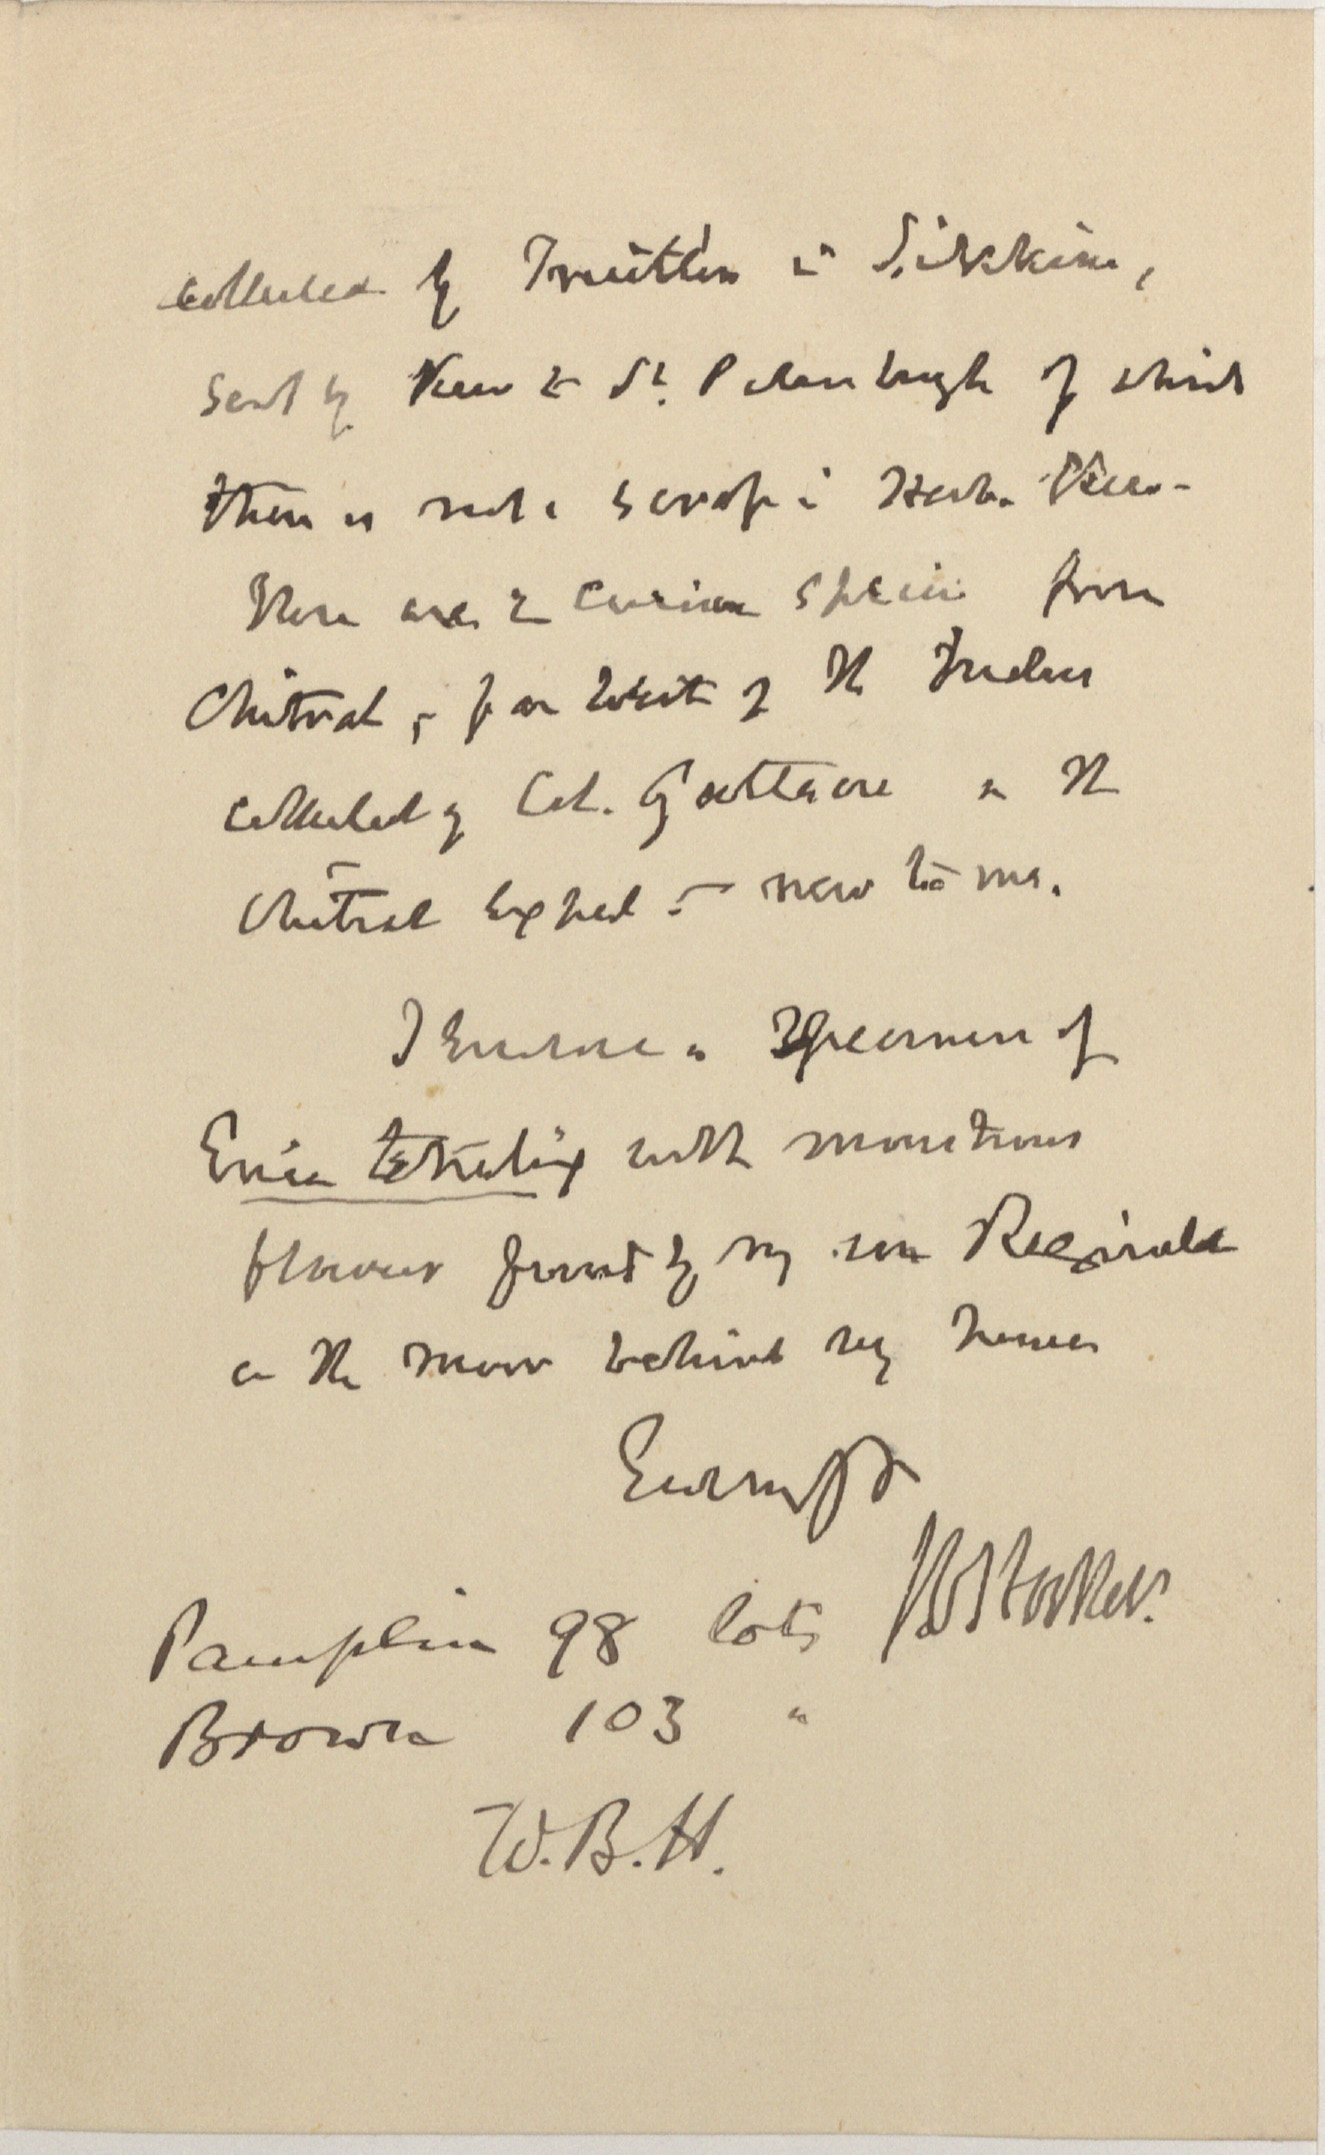 collected by Treutler in Sikkim,
sent by Kew to St. Petersburgh of which
there is not a scrap in Herb. Kew.
There are 2 curious species from
Chitral, far West of the Indus
collected by Col. Gatacre in the
Chitral Exped. — new to me.
I enclose a specimen of
Erica tetralix with monstrous
flowers found by my son Reginald
on the moor behind my house
J D Hooker.
Pamplin 98 lots
Brown 103 "
W. B. H.